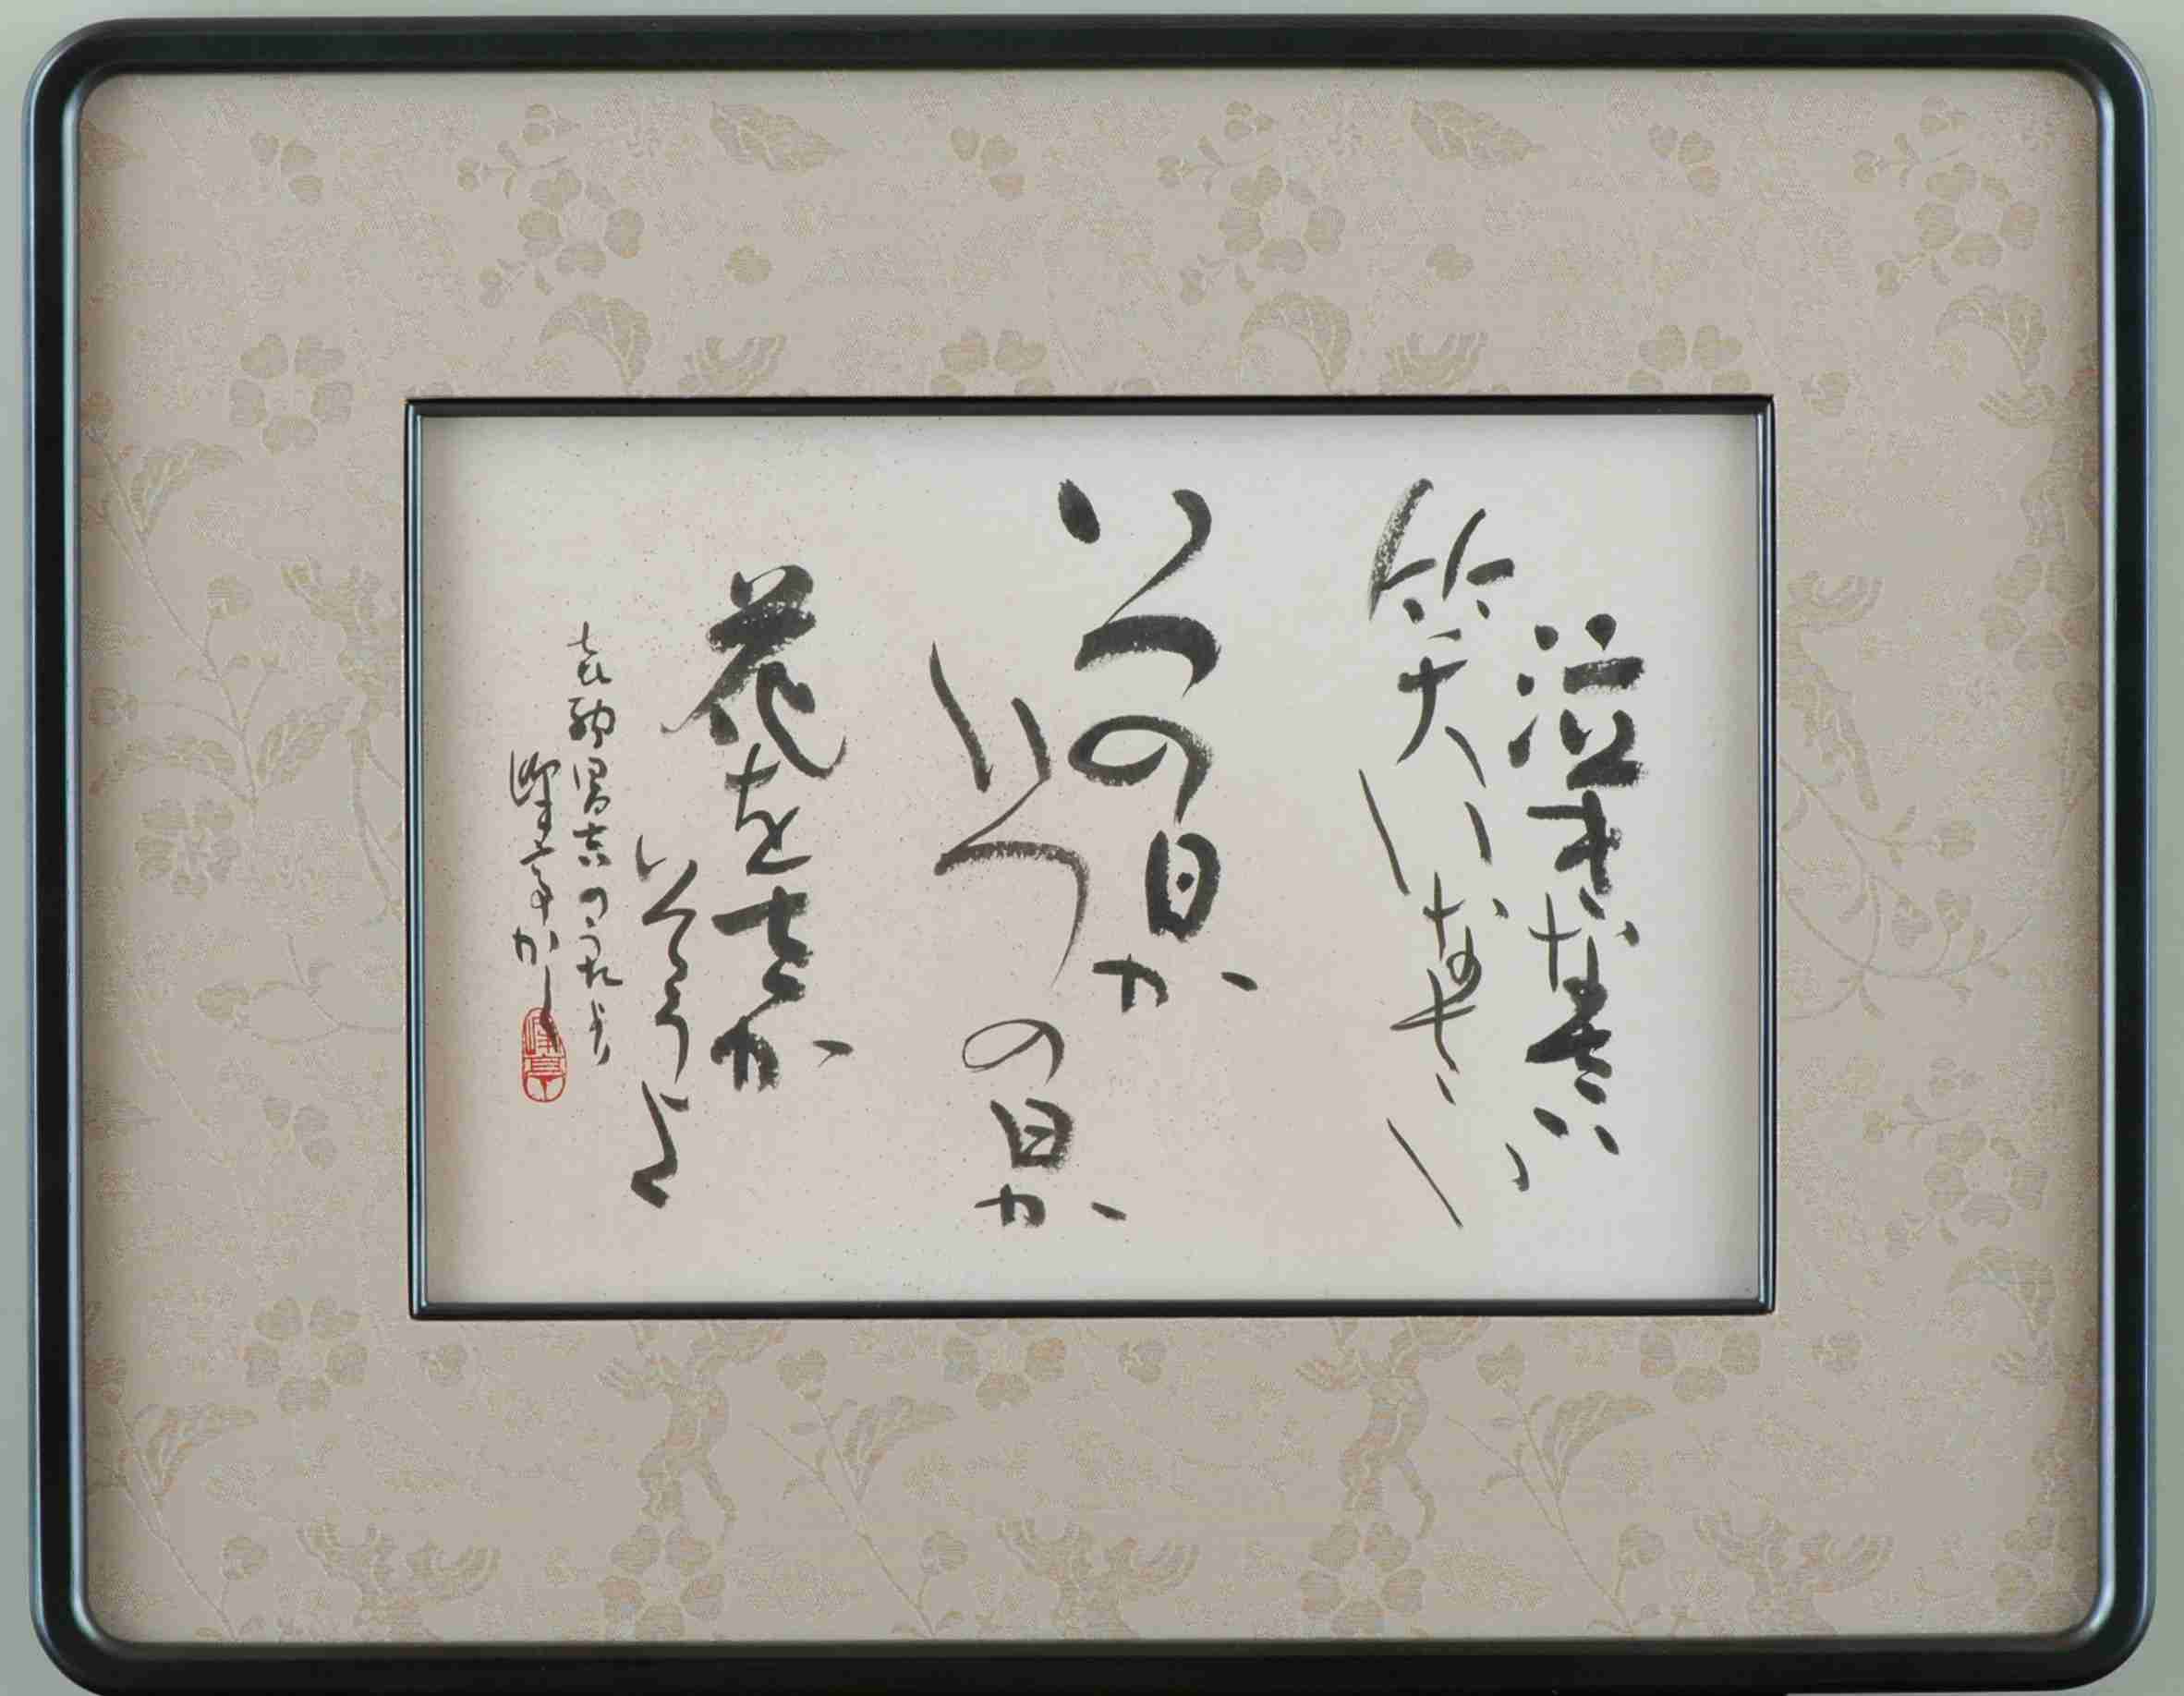 泣きなさい
笑いなさい
いつの日か
いつの日か
花をさか
そうよ
喜納昌吉のうたより